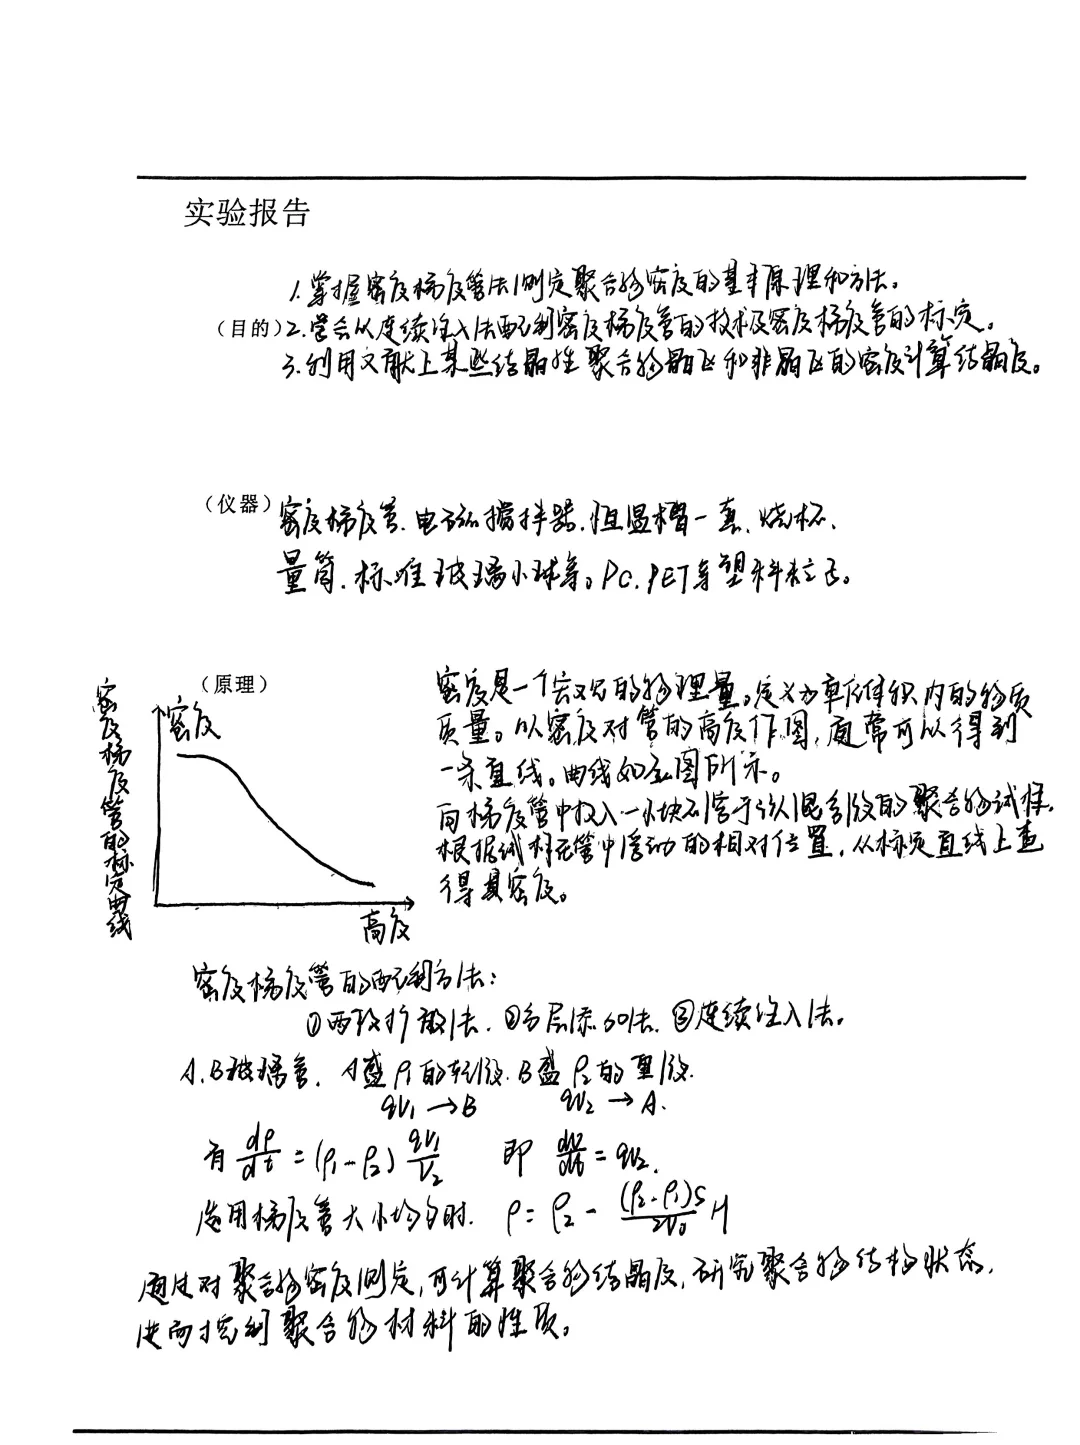 实验报告
1.掌握密度梯度管法测定聚合物密度的基本原理和方法。
(目的)2.学会从连续注入法配制密度梯度管的技术及密度梯度管的标定。
3.利用文献上某些结晶性聚合物晶区和非晶区的密度计算结晶度。
(仪器)密度梯度管、电磁搅拌器、恒温槽一套、烧杯、
量筒、标准玻璃小球等。PC、PET等塑料粒子。
(原理)
密度梯度管的标定曲线
密度
高度
密度是一个宏观的物理量。定义为单位体积内的物质
质量。以密度对管的高度作图,通常可以得到
一条直线。曲线如左图所示。
向梯度管中投入一小块不溶于该混合液的聚合物试样,
根据试样在管中浮动的相对位置,从标定直线上查
得其密度。
密度梯度管的配制方法:
①两段扩散法、②分层添加法、③连续注入法。
A、B玻璃管,A盛ρ1的轻液、B盛ρ2的重液.
qv1→B qv2→A.
有 dρ/dt=(ρ1-ρ2) qv1/V2 即 dv/dt=qv2.
选用梯度管大小均匀时. ρ=ρ2-(ρ2-ρ1)S/2V0 H
通过对聚合物密度测定,可计算聚合物结晶度,研究聚合物结构状态,
进而控制聚合物材料的性质。